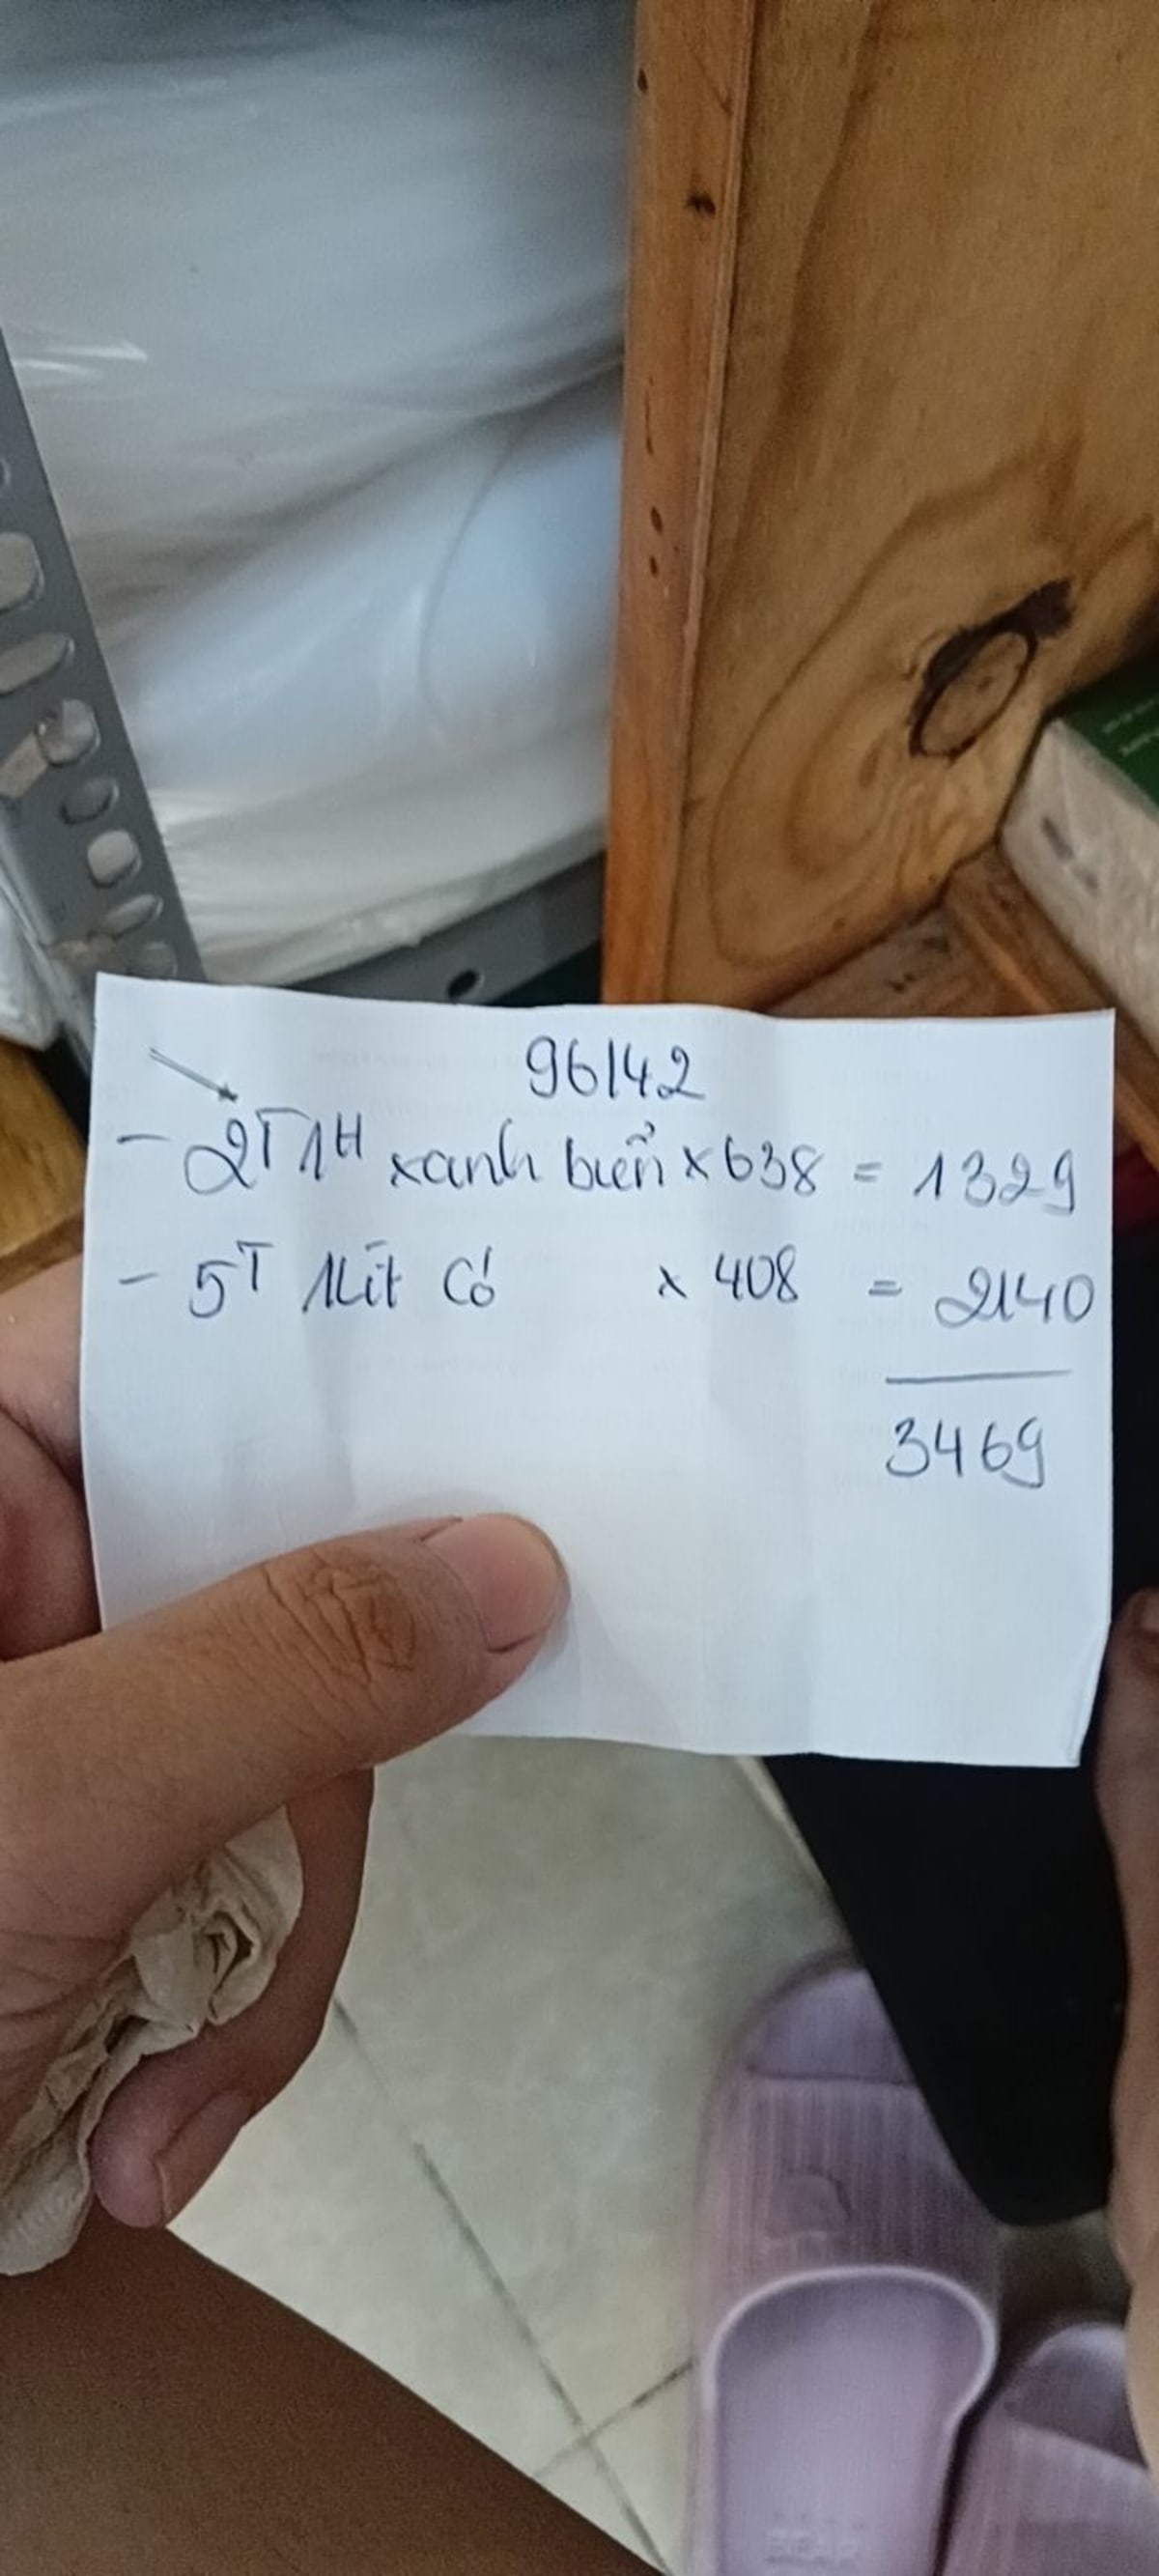 96142
- 2T 1H xanh biển x 638 = 1329
- 5T 1lít Có x 408 = 2140
3469